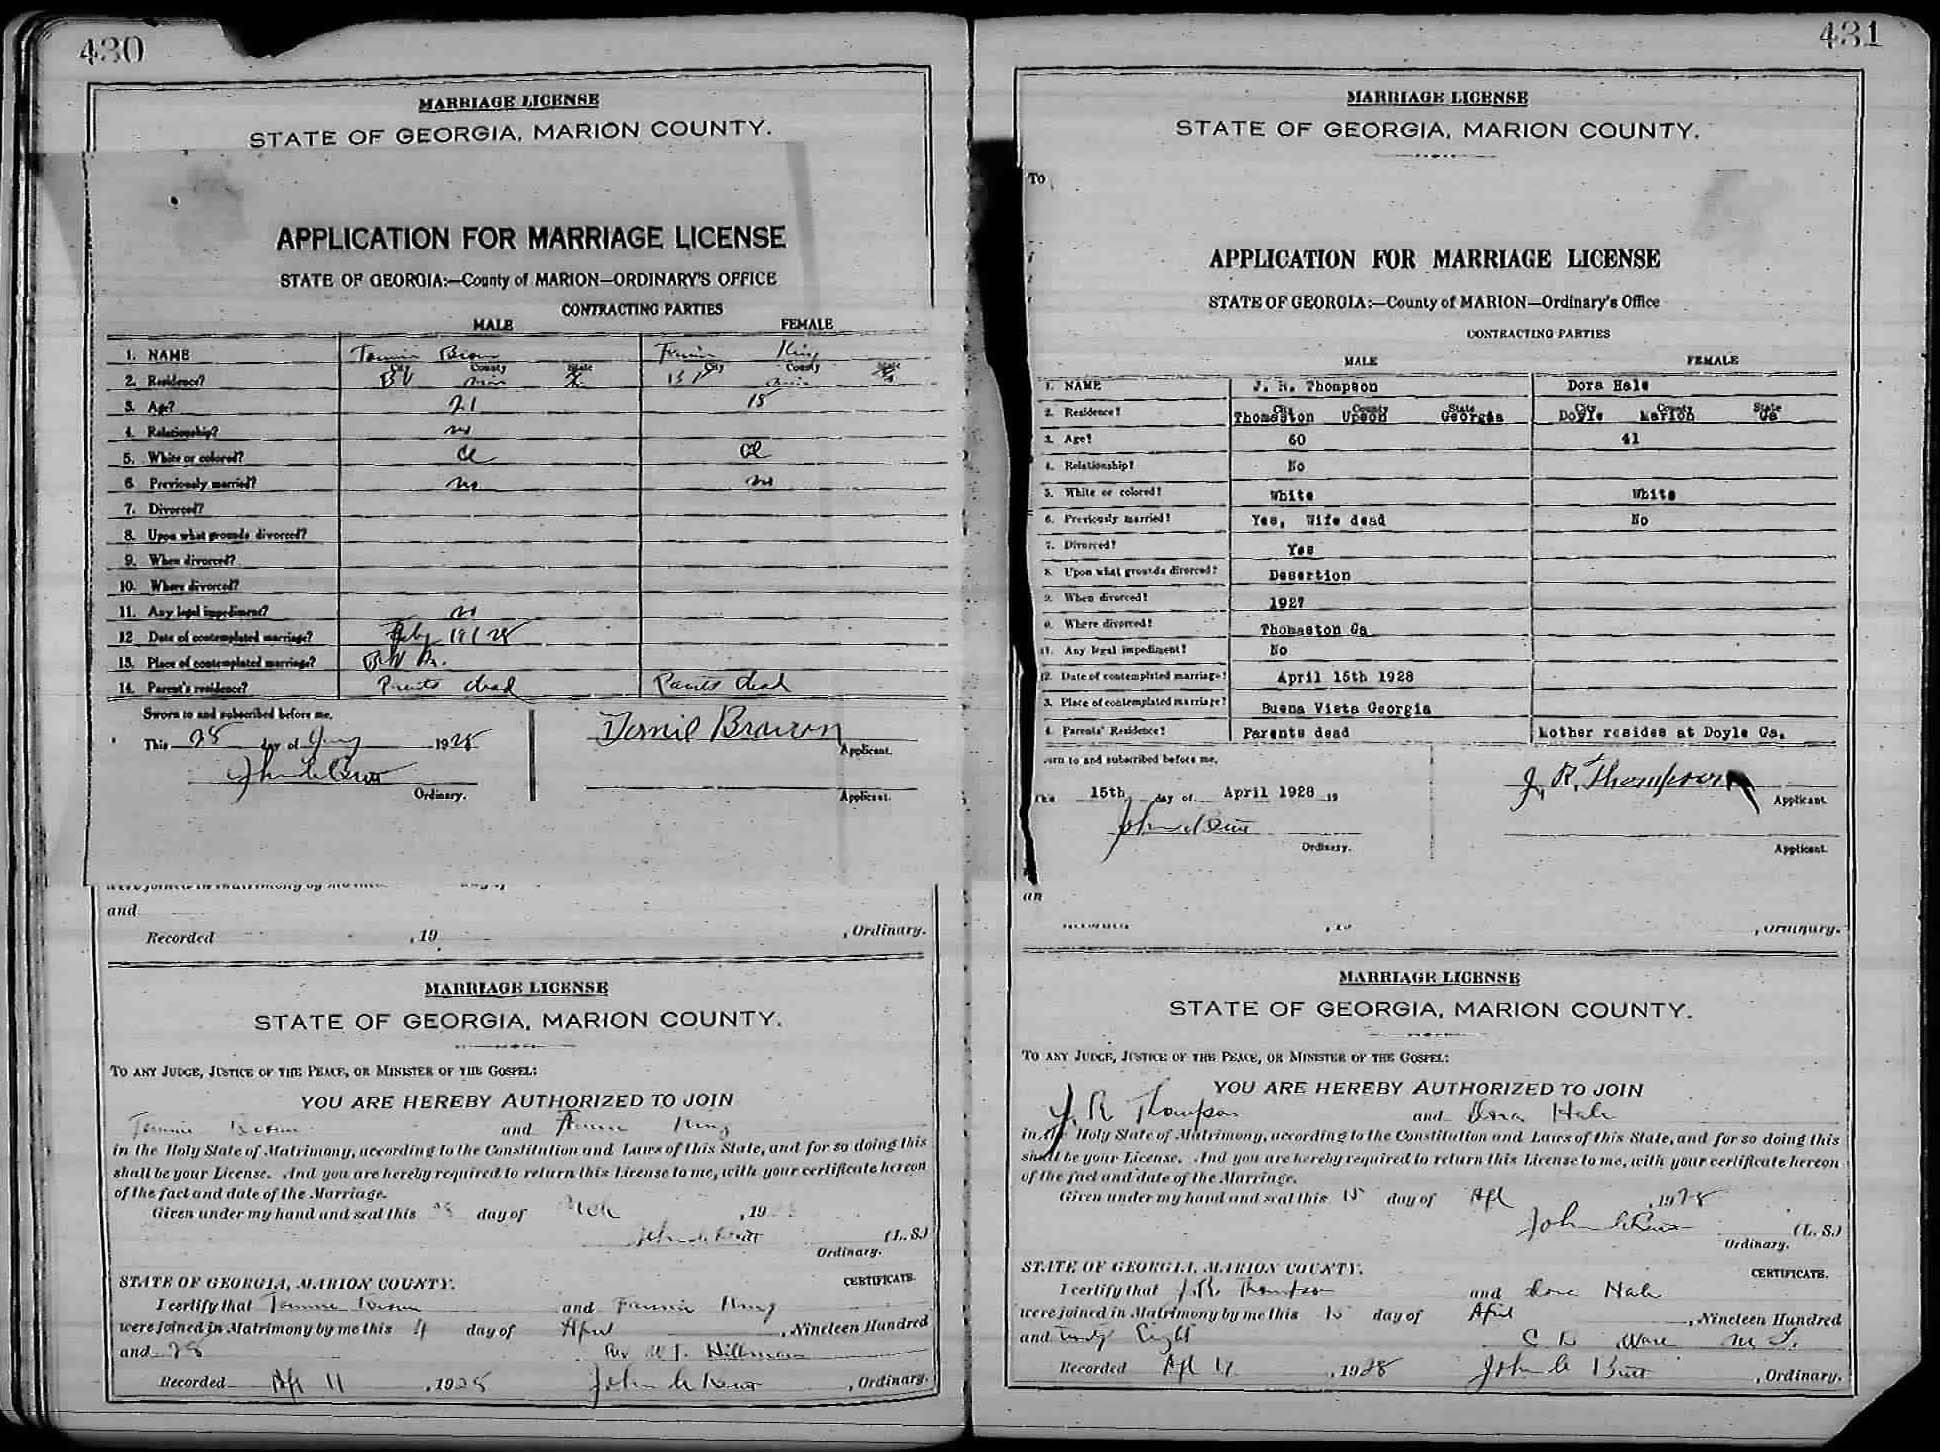 430
MARRIAGE LICENSE
STATE OF GEORGIA, MARION COUNTY.
APPLICATION FOR MARRIAGE LICENSE
STATE OF GEORGIA:—County of MARION—ORDINARY'S OFFICE
CONTRACTING PARTIES
MALE FEMALE
1. NAME Tommie Brown Fannie King
2. Residence? City BV County State City BV County State
3. Age? 21 18
4. Relationship? no
5. White or colored? Col Col
6. Previously married? no no
7. Divorced?
8. Upon what grounds divorced?
9. When divorced?
10. Where divorced?
11. Any legal impediment? no
12 Date of contemplated marriage?
13. Place of contemplated marriage?
14. Parent's residence? Parents dead Parents dead
Sworn to and subscribed before me,
This 28 day of 1928
John C Butt
Ordinary.
Applicant.
Applicant.
and
Recorded , 19 , Ordinary.
MARRIAGE LICENSE
STATE OF GEORGIA, MARION COUNTY.
TO ANY JUDGE, JUSTICE OF THE PEACE, OR MINISTER OF THE GOSPEL:
YOU ARE HEREBY AUTHORIZED TO JOIN
Tommie Brown and Fannie King
in the Holy State of Matrimony, according to the Constitution and Laws of this State, and for so doing this
shall be your License. And you are hereby required to return this License to me, with your certificate hereon
of the fact and date of the Marriage.
Given under my hand and seal this 28 day of , 19
John C Butt (L. S.)
Ordinary.
STATE OF GEORGIA, MARION COUNTY. CERTIFICATE.
I certify that Tommie Brown and Fannie King
were joined in Matrimony by me this 4 day of April , Nineteen Hundred
and 28 Rev
Recorded Apl 11 , 1928 John C Butt , Ordinary.
431
MARRIAGE LICENSE
STATE OF GEORGIA, MARION COUNTY.
To
APPLICATION FOR MARRIAGE LICENSE
STATE OF GEORGIA:—County of MARION—Ordinary's Office
CONTRACTING PARTIES
MALE FEMALE
1. NAME J. R. Thompson Dora Hale
2. Residence? City Thomaston County Upson State Georgia City Doyle County Marion State Ga
3. Age? 60 41
4. Relationship? No
5. White or colored? White White
6. Previously married? Yes, Wife dead No
7. Divorced? Yes
8. Upon what grounds divorced? Desertion
9. When divorced? 1927
0. Where divorced? Thomaston Ga
11. Any legal impediment? No
12. Date of contemplated marriage? April 15th 1928
3. Place of contemplated marriage? Buena Vista Georgia
4. Parents' Residence? Parents dead Mother resides at Doyle Ga.
orn to and subscribed before me,
This 15th day of April 1928 19
John C Butt
Ordinary.
J. R. Thompson
Applicant.
Applicant.
an
, Ordinary.
MARRIAGE LICENSE
STATE OF GEORGIA, MARION COUNTY.
TO ANY JUDGE, JUSTICE OF THE PEACE, OR MINISTER OF THE GOSPEL:
YOU ARE HEREBY AUTHORIZED TO JOIN
J. R Thompson and Dora Hale
in the Holy State of Matrimony, according to the Constitution and Laws of this State, and for so doing this
shall be your License. And you are hereby required to return this License to me, with your certificate hereon
of the fact and date of the Marriage.
Given under my hand and seal this 15 day of Apl , 1928
John C Butt (L. S.)
Ordinary.
STATE OF GEORGIA, MARION COUNTY. CERTIFICATE.
I certify that J. R. Thompson and Dora Hale
were joined in Matrimony by me this 15 day of April , Nineteen Hundred
and Twenty Eight C D Ware
Recorded Apl 17 , 1928 John C Butt , Ordinary.